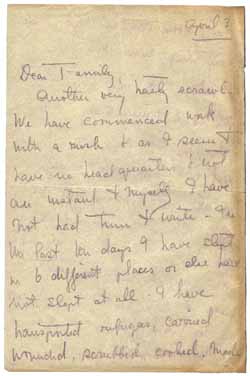 April 3
Dear Family,
Another very hasty scrawl.
We have commenced work
with a rush & as I seem to
have no headquarters & not
an instant to myself, I have
not had time to write - In
the past ten days I have slept
in 6 different places or else have
not slept at all. I have
transported refugees, carried
wounded, scrubbed, cooked, made